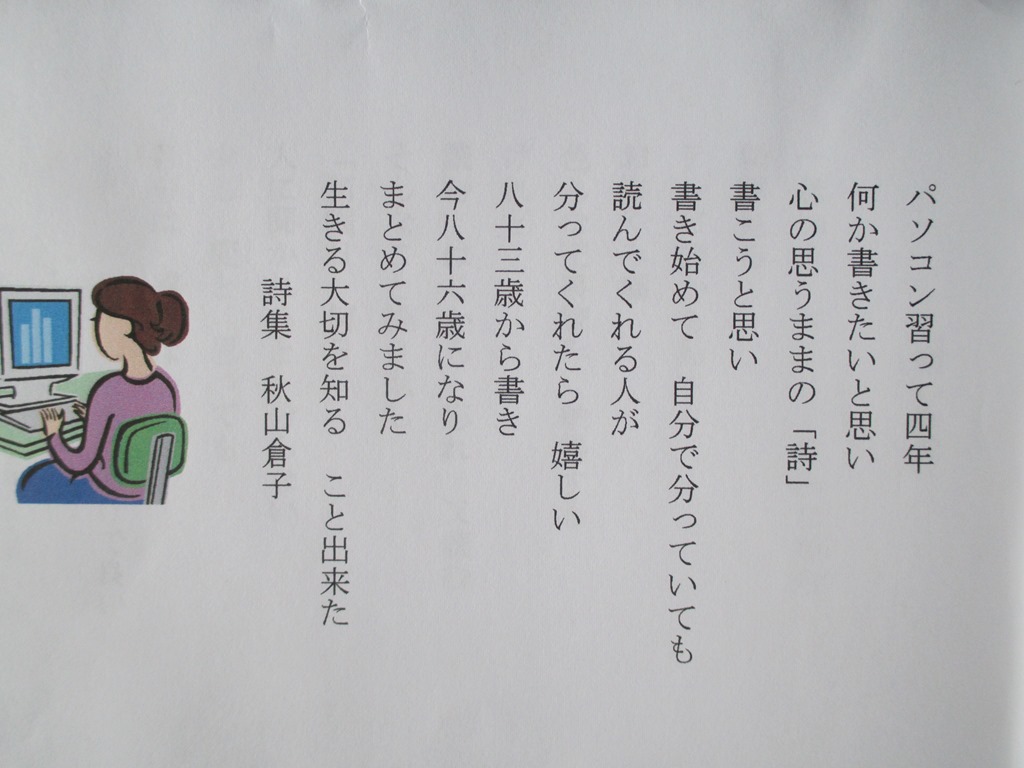 パソコン習って四年
何か書きたいと思い
心の思うままの「詩」
書こうと思い
書き始めて　自分で分っていても
読んでくれる人が
分ってくれたら　嬉しい
八十三歳から書き
今八十六歳になり
まとめてみました
生きる大切を知る　こと出来た
詩集　秋山倉子